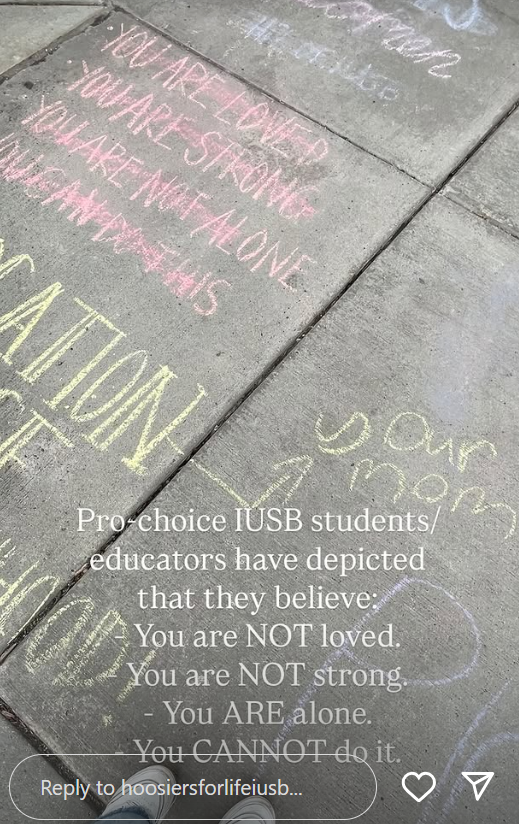 women
YOU ARE LOVED
YOU ARE STRONG
YOU ARE NOT ALONE
YOU CAN DO THIS
CATION
your
mom
HOOD!
Pro-choice IUSB students/
educators have depicted
that they believe:
- You are NOT loved.
- You are NOT strong.
- You ARE alone.
- You CANNOT do it.
Reply to hoosiersforlifeiusb...